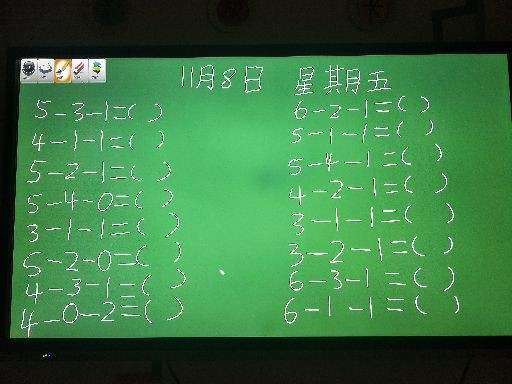 11月8日 星期五
5-3-1=( )
4-1-1=( )
5-2-1=( )
5-4-0=( )
3-1-1=( )
5-2-0=( )
4-3-1=( )
4-0-2=( )
6-2-1=( )
5-1-1=( )
5-4-1=( )
4-2-1=( )
3-1-1=( )
3-2-1=( )
6-3-1=( )
6-1-1=( )